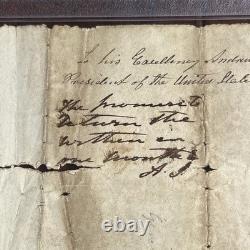 To his Excellency Andrew
President of the United State
The promise to
return the
written in
one month
A. J